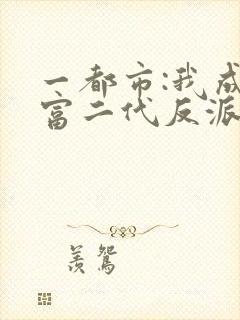 一都市:我成
富二代反派
羡鸳